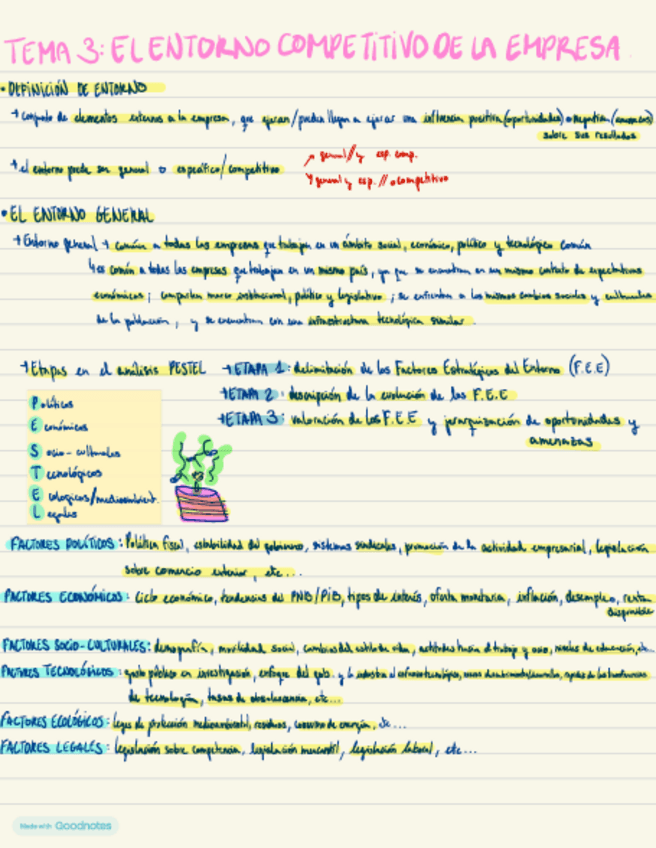 TEMA 3: EL ENTORNO COMPETITIVO DE LA EMPRESA
• DEFINICIÓN DE ENTORNO
→ Conjunto de elementos externos a la empresa, que ejercen/pueden llegar a ejercer una influencia positiva (oportunidades) o negativa (amenazas)
sobre sus resultados
→ el entorno puede ser general o específico/competitivo
general//y esp. comp.
general y esp.//o competitivo
• EL ENTORNO GENERAL
→ Entorno general → común a todas las empresas que trabajan en un ámbito social, económico, político y tecnológico común
es común a todas las empresas que trabajan en un mismo país, ya que se encuentran en un mismo contexto de expectativas
económicas; comparten marco institucional, político y legislativo; se enfrentan a los mismos cambios sociales y culturales
de la población, y se encuentran con una infraestructura tecnológica similar.
→ Etapas en el análisis PESTEL → ETAPA 1: delimitación de los Factores Estratégicos del Entorno (F.E.E)
→ ETAPA 2: descripción de la evolución de los F.E.E
→ ETAPA 3: valoración de los F.E.E y jerarquización de oportunidades y
amenazas
Políticos
Económicos
Socio-culturales
Tecnológicos
Ecológicos/medioambient.
Legales
FACTORES POLÍTICOS: Política fiscal, estabilidad del gobierno, sistemas sindicales, promoción de la actividad empresarial, legislación
sobre comercio exterior, etc...
FACTORES ECONÓMICOS: Ciclo económico, tendencias del PNB/PIB, tipos de interés, oferta monetaria, inflación, desempleo, renta
disponible
FACTORES SOCIO-CULTURALES: demografía, movilidad social, cambios del estilo de vida, actitudes hacia el trabajo y ocio, niveles de educación, etc...
FACTORES TECNOLÓGICOS: gasto público en investigación, enfoque del gob. y la industria al esfuerzo tecnológico,
de tecnología, tasas de obsolescencia, etc...
FACTORES ECOLÓGICOS: leyes de protección medioambiental, residuos, consumo de energía, etc...
FACTORES LEGALES: legislación sobre competencia, legislación mercantil, legislación laboral, etc...
Made with Goodnotes